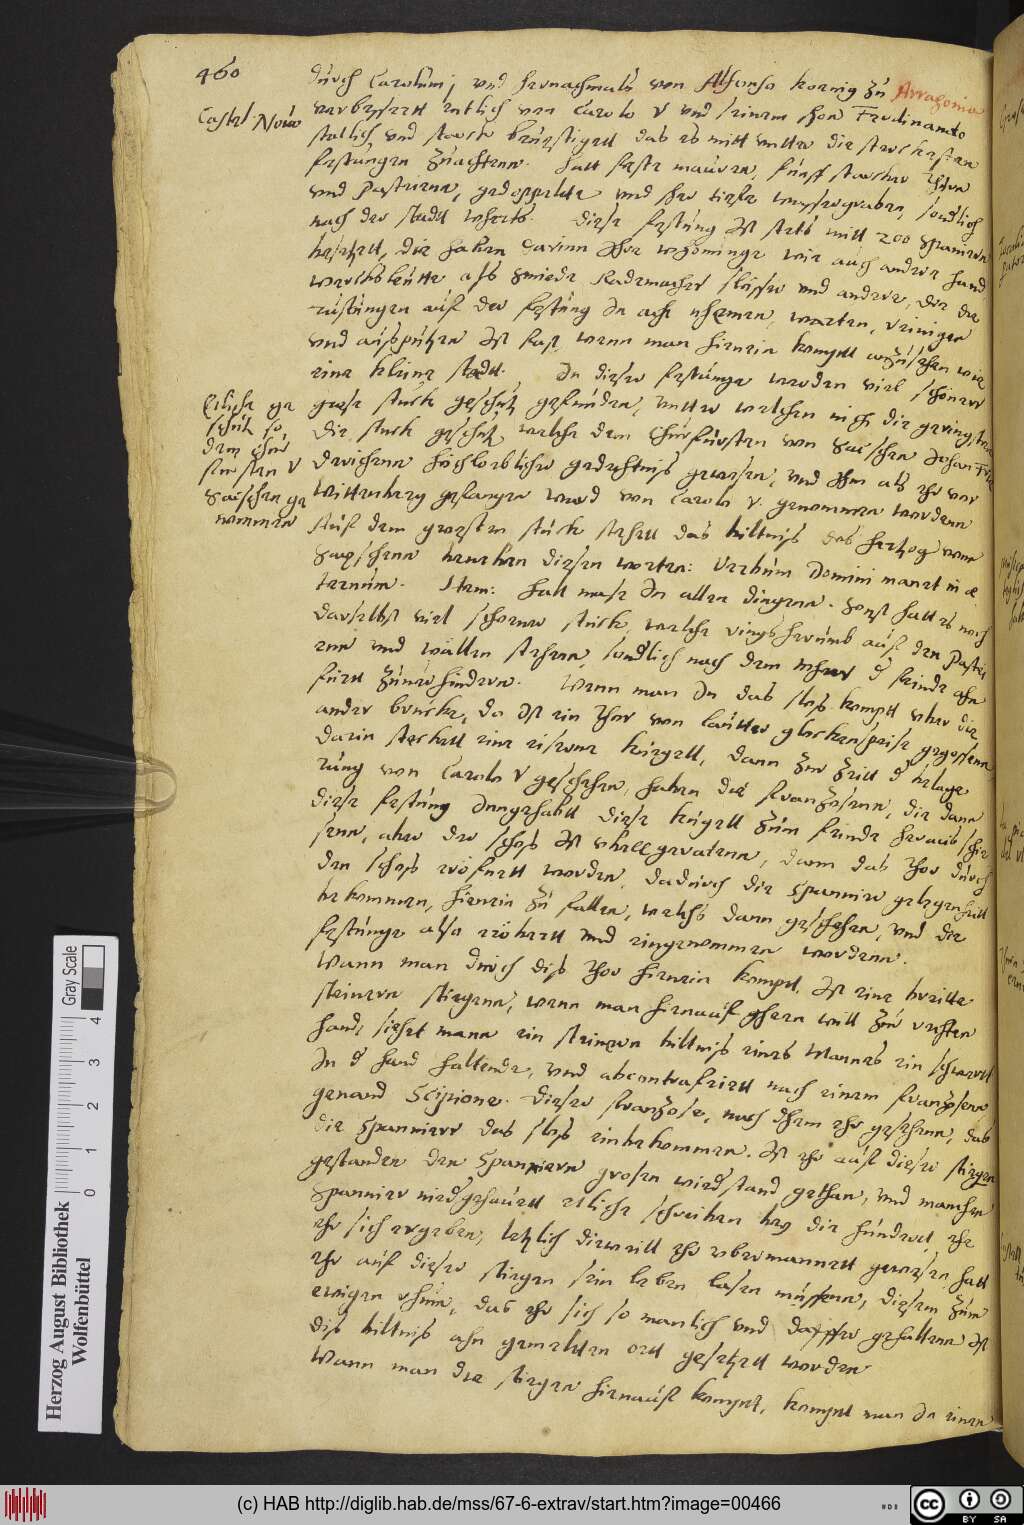 460
durch Carolum j und hernachmals von Alfonso Koenig zu Arragonia
Castel Novo
verbessert entlich von Carolo V und seinem shon Ferdinando
statlich und starck befestigett das es mitt untter die stercksten
festungen zuachtenn. Hatt feste mauren, funff starcker
und Pasteienn, gedoppelte und sher tieffe wassergraben, sondlich
nach der stadt wherts. Diese festung Ist stets mitt 200 Spaniern
besetzett, die haben darinn Ihre wohnunge wie auch andere hand
wercksleutte als Smiede Rademacher slosser und andere, der die
rustungen auf der festung In acht nhemen, warten, reinigen
und aussputzen Ist fast, wenn man hienein kompt anzusehen wie
eine kleine stadt. In dieser festunge werden viel schoner
Etliche ge
schutz so
dem Chur
fursten V
Sachsen ge
nommen
grose stuck geschutz gefunden, untter welchen nich die geringsten
die stuck geschutz, welche dem Churfursten von Sachsen Johan Frie
derichenn hochloblicher gedechtnis gewesen, und Ihm als ehr vor
Wittenberg gefangen ward von Carolo V. genommen wordenn
Auf dem grosten stuck stehett das biltnis des Hertzog vonn
Sachsenn beneben diesen worten: Verbum Domini manet in æ
ternum. Item: Halt mase In allen dingenn. Sonst hatt es noch
daselbst viel schoner stuck, welche rings herumb auf den Pastei
enn und wallen stehenn, sondlich nach dem Mher d feinde ahn
furtt zuverhindern. Wenn man In das slos kompt uber die
ander brucke, da Ist ein Thor von lautter glockenspeise gegossenn
darin steckett eine eiserne kugell, dann zur zeitt d belage
rung von Carolo V geschehen, haben die Franzosenn, die dann
diese festung Inngehabtt diese kugell zum feinde heraus schie
senn, aber der schos Ist ubell geratenn, dann das Thor durch
den schoss eröfnett worden, dadurch die Spannier gelegenheitt
bekommen, hienein zu fallen, welchs dann geschehen, und die
festunge also eröbertt und eingenommen wordenn.
Wann man durch dis Thor hienein kompt, Ist eine breitte
steinern stiegenn, wenn man hienauf gehen will zur rechten
hand, siehet mann ein steinern biltnis eines Mannes ein schwertt
In d hand haltende, und abcontrafeiett nach einem Franzosen
genand Scipione. Dieser Franzose, nach dhem ehr gesehenn, das
die Spannierr das slos einbekommen, Ist ehr auf dieser stiegen
gestanden den Spanniern grosen wiedstand gethan, und manchen
Spannier niedgehauett etliche schreiben bey die hundert, ehe
ehr sich ergeben, letzlich dieweill ehr ubermannett gewesen hatt
ehr auf dieser stiegen sein leben lasen müssenn, diesem zum
ewigen rhum, das ehr sich so manlich und dapffer gehaltenn Ist
dis biltnis ahn gemelten ortt gesetzett worden
Wann man die stiegen hienauf kompt, kompt man In einen
Herzog August Bibliothek
Wolfenbüttel
0 1 2 3 4
Gray Scale
(c) HAB http://diglib.hab.de/mss/67-6-extrav/start.htm?image=00466
cc BY SA